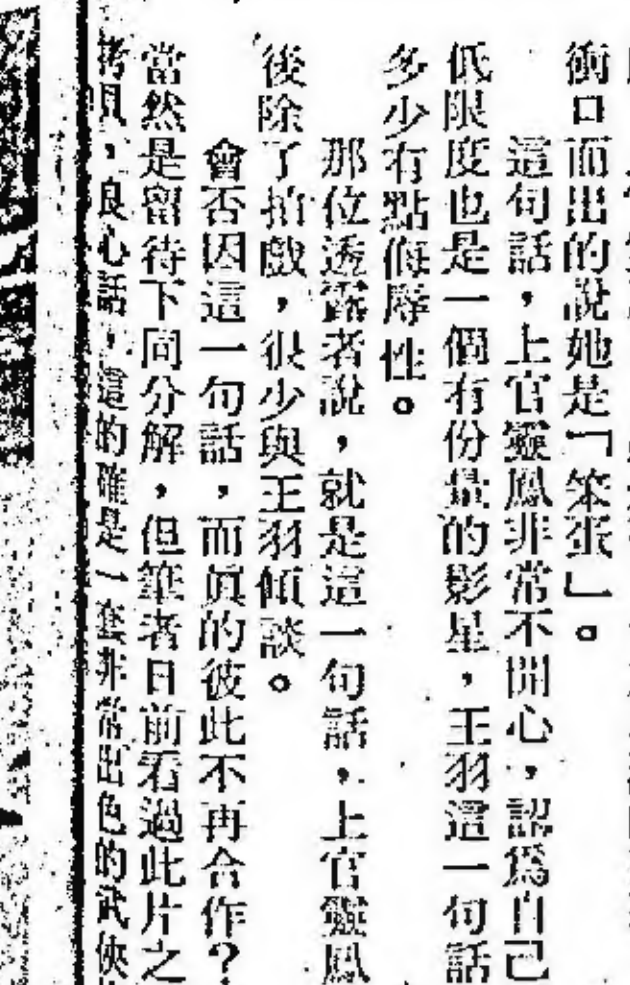 衝口而出的說她是「笨蛋」。
這句話，上官靈鳳非常不開心，認爲自己
低限度也是一個有份量的影星，王羽這一句話
多少有點侮辱性。
那位透露者說，就是這一句話，上官靈鳳
後除了拍戲，很少與王羽傾談。
會否因這一句話，而眞的彼此不再合作？
當然是留待下回分解，但筆者日前看過此片之
拷貝，良心話，這的確是一套非常出色的武俠